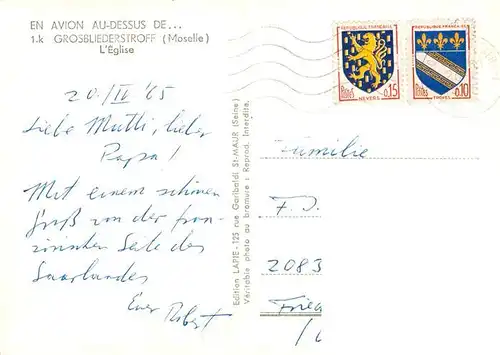 EN AVION AU-DESSUS DE...
1.k GROSBLIEDERSTROFF (Moselle)
L'Église
20/IV 65
Liebe Mutti, lieber
Papa!
Mit einem schönen
Gruß von der fran-
zösischen Seite des
Saarlandes
Euer Robert
Edition LAPIE - 125 rue Garibaldi St-MAUR (Seine)
Véritable photo au bromure : Reprod. Interdite.
REPUBLIQUE FRANÇAISE
Postes 0,15
NEVERS
REPUBLIQUE FRANÇAISE
Postes 0,10
TROYES
Familie
F.
2083